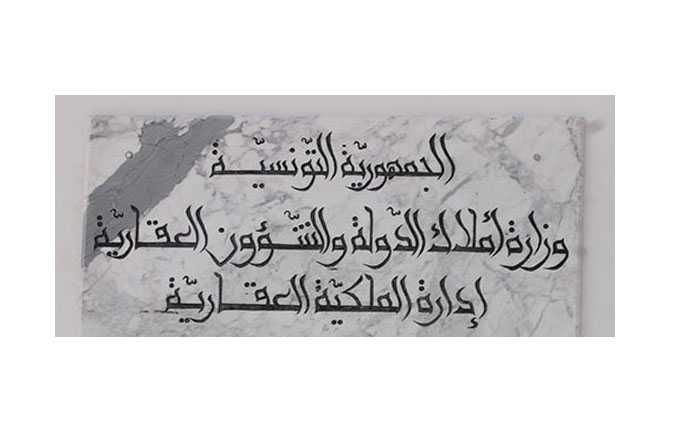 الجمهوريّة التّونسيّة
وزارة أملاك الدّولة والشّؤون العقاريّة
إدارة الملكيّة العقاريّة